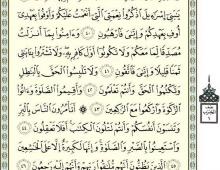 يَٰبَنِىٓ إِسْرَٰٓءِيلَ ٱذْكُرُوا۟ نِعْمَتِىَ ٱلَّتِىٓ أَنْعَمْتُ عَلَيْكُمْ وَأَوْفُوا۟
بِعَهْدِىٓ أُوفِ بِعَهْدِكُمْ وَإِيَّٰىَ فَٱرْهَبُونِ ٤٠ وَءَامِنُوا۟ بِمَآ أَنزَلْتُ
مُصَدِّقًا لِّمَا مَعَكُمْ وَلَا تَكُونُوٓا۟ أَوَّلَ كَافِرٍۭ بِهِۦ وَلَا تَشْتَرُوا۟ بِـَٔايَٰتِى
ثَمَنًا قَلِيلًا وَإِيَّٰىَ فَٱتَّقُونِ ٤١ وَلَا تَلْبِسُوا۟ ٱلْحَقَّ بِٱلْبَٰطِلِ
ٱلزَّكَوٰةَ وَٱرْكَعُوا۟ مَعَ ٱلرَّٰكِعِينَ ٤٣ أَتَأْمُرُونَ ٱلنَّاسَ بِٱلْبِرِّ
وَتَنسَوْنَ أَنفُسَكُمْ وَأَنتُمْ تَتْلُونَ ٱلْكِتَٰبَ أَفَلَا تَعْقِلُونَ ٤٤
وَٱسْتَعِينُوا۟ بِٱلصَّبْرِ وَٱلصَّلَوٰةِ وَإِنَّهَا لَكَبِيرَةٌ إِلَّا عَلَى ٱلْخَٰشِعِينَ
٤٥ ٱلَّذِينَ يَظُنُّونَ أَنَّهُم مُّلَٰقُوا۟ رَبِّهِمْ وَأَنَّهُمْ إِلَيْهِ رَٰجِعُونَ ٤٦